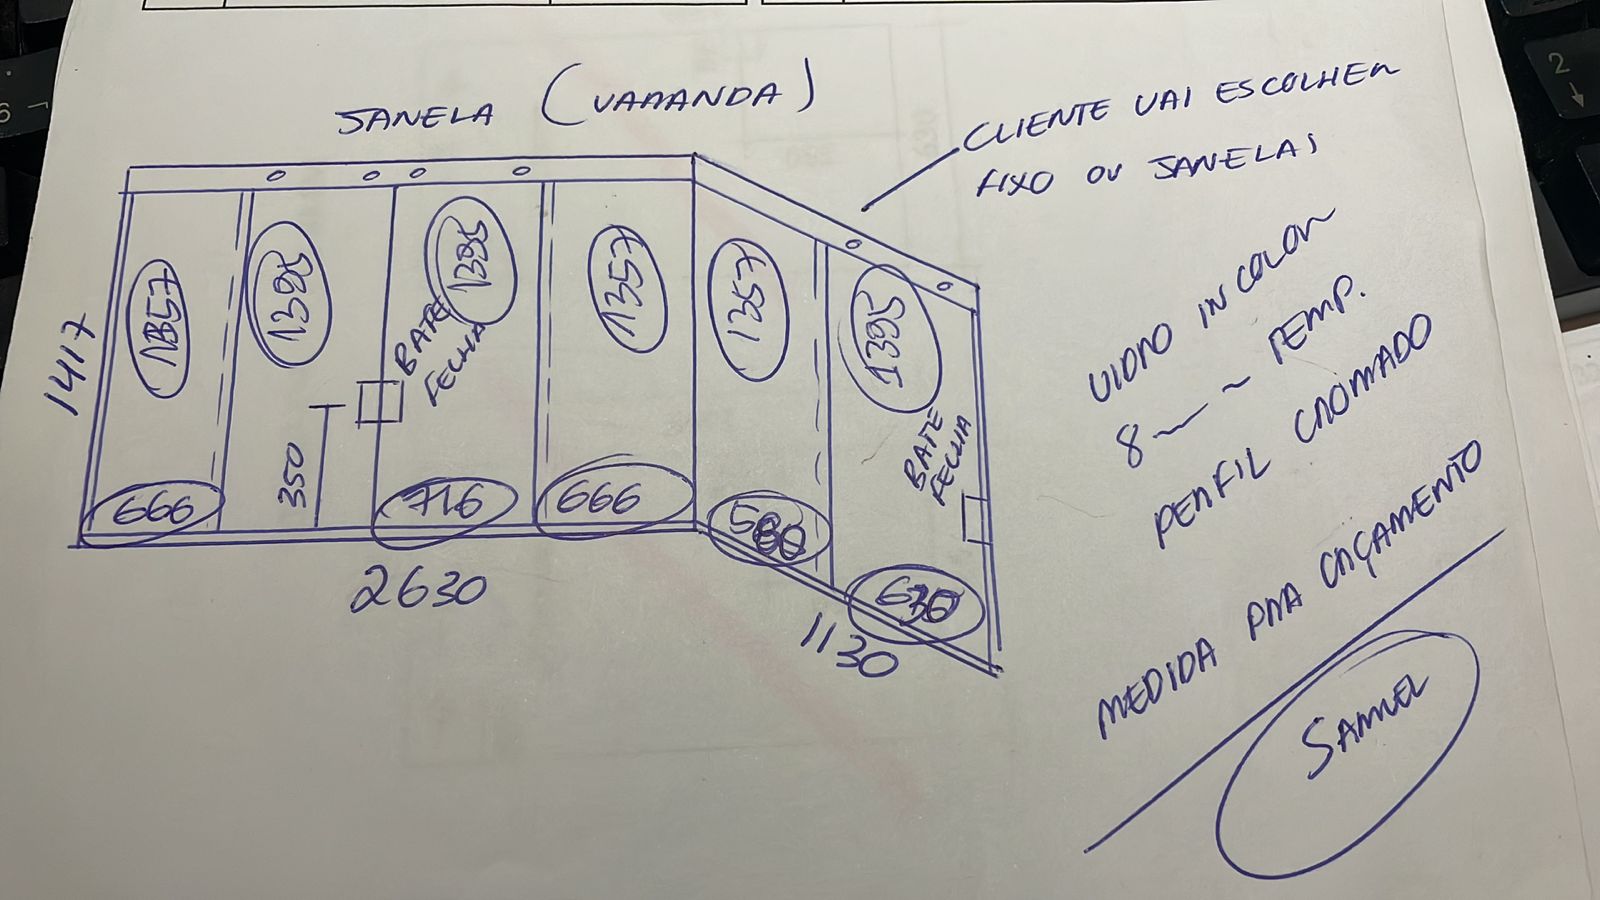 JANELA (VARANDA)
CLIENTE VAI ESCOLHER
FIXO OU JANELAS
1417
1357
1395
1395
1357
1357
1395
BATE
FECHA
BATE
FECHA
350
666
716
666
580
630
2630
1130
VIDRO INCOLOR
8 TEMP.
PERFIL CROMADO
MEDIDA PRA ORÇAMENTO
SAMUEL
6
2